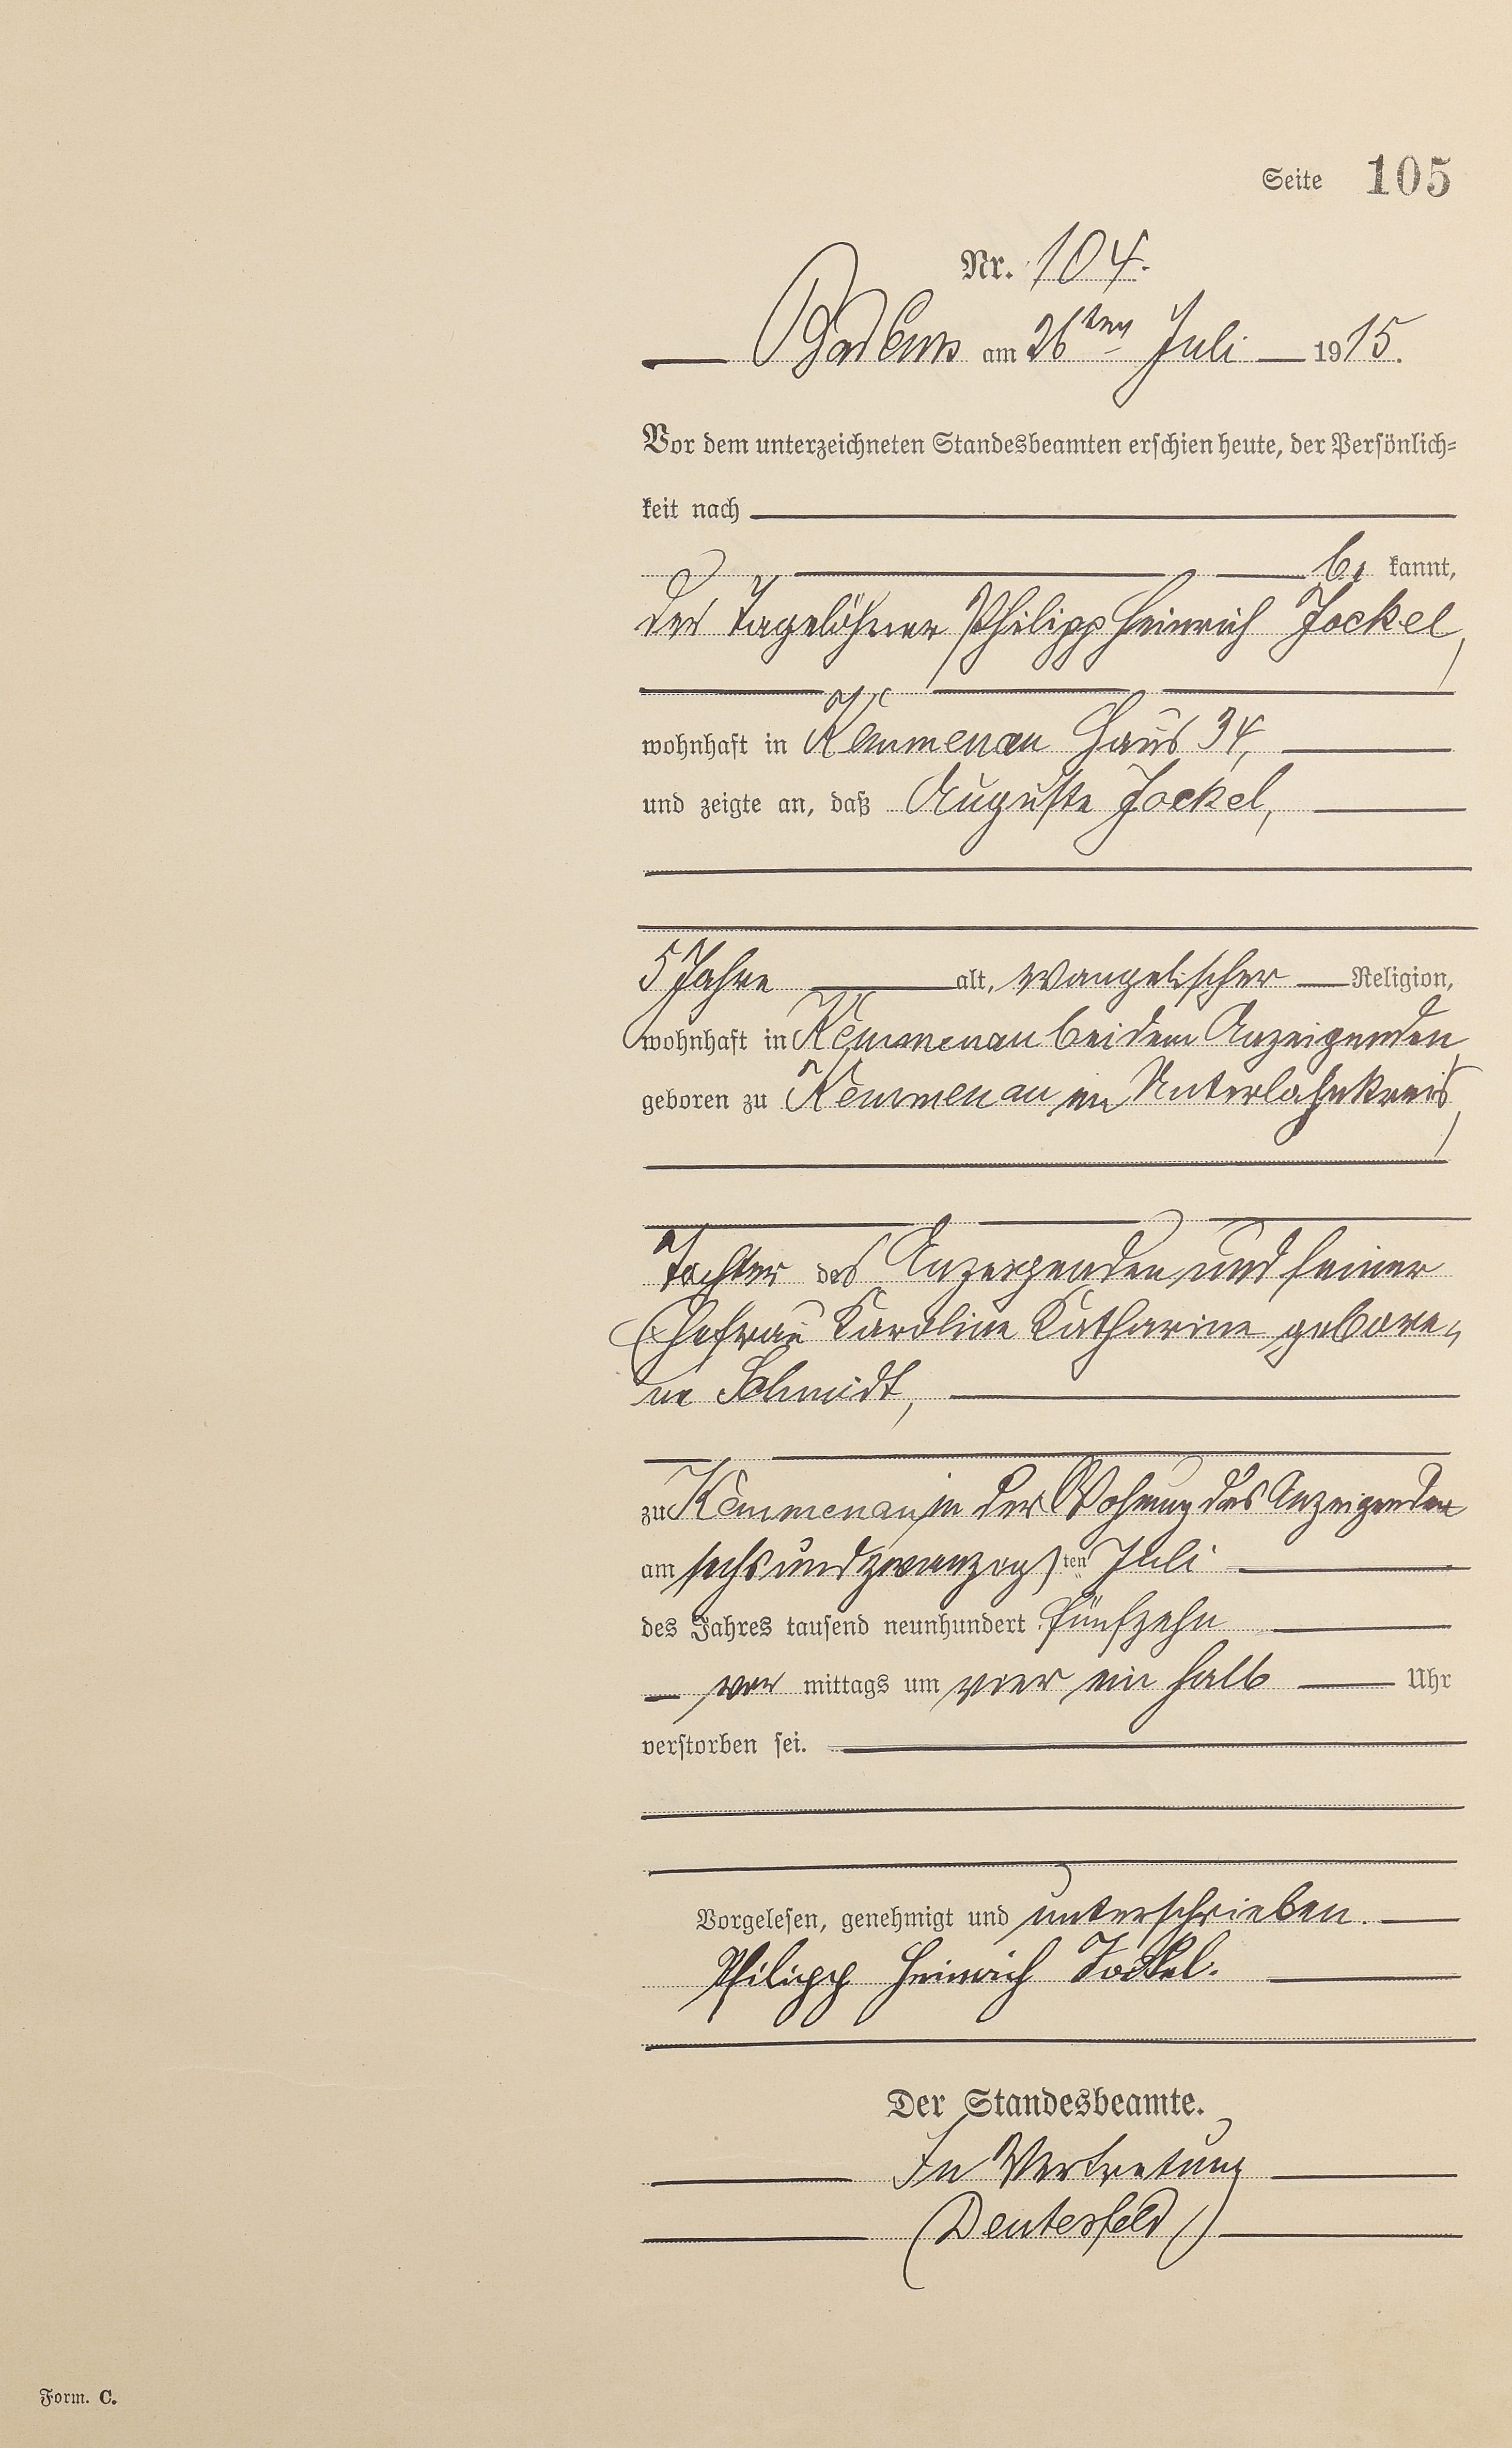 Seite 105
Nr. 104.
Bad Ems am 26ten Juli 1915.
Vor dem unterzeichneten Standesbeamten erschien heute, der Persönlich=
keit nach
be kannt,
der Tagelöhner Philipp Heinrich Jockel,
wohnhaft in Kemmenau Haus 34,
und zeigte an, daß Auguste Jockel,
5 Jahre alt, evangelischer Religion,
wohnhaft in Kemmenau bei dem Anzeigenden
geboren zu Kemmenau im Unterlahnkreis,
Tochter des Anzeigenden und seiner
Ehefrau Karoline Katharine gebore-
ne Schmidt,
zu Kemmenau in der Wohnung des Anzeigenden
am sechsundzwanzigsten Juli
des Jahres tausend neunhundert fünfzehn
vor mittags um vier ein halb Uhr
verstorben sei.
Vorgelesen, genehmigt und unterschrieben.
Philipp Heinrich Jockel.
Der Standesbeamte.
In Vertretung
(Deutesfeld)
Form. C.